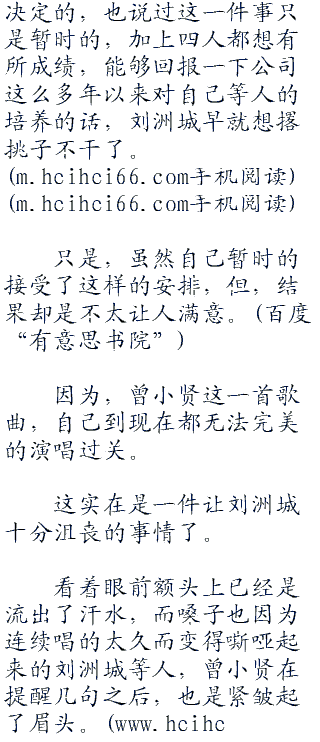 决定的，也说过这一件事只
是暂时的，加上四人都想有
所成绩，能够回报一下公司
这么多年以来对自己等人的
培养的话，刘洲城早就想撂
挑子不干了。
(m.hcihci66.com手机阅读)
(m.hcihci66.com手机阅读)
只是，虽然自己暂时的
接受了这样的安排，但，结
果却是不太让人满意。(百度
“有意思书院”)
因为，曾小贤这一首歌
曲，自己到现在都无法完美
的演唱过关。
这实在是一件让刘洲城
十分沮丧的事情了。
看着眼前额头上已经是
流出了汗水，而嗓子也因为
连续唱的太久而变得嘶哑起
来的刘洲城等人，曾小贤在
提醒几句之后，也是紧皱起
了眉头。(www.hcihc